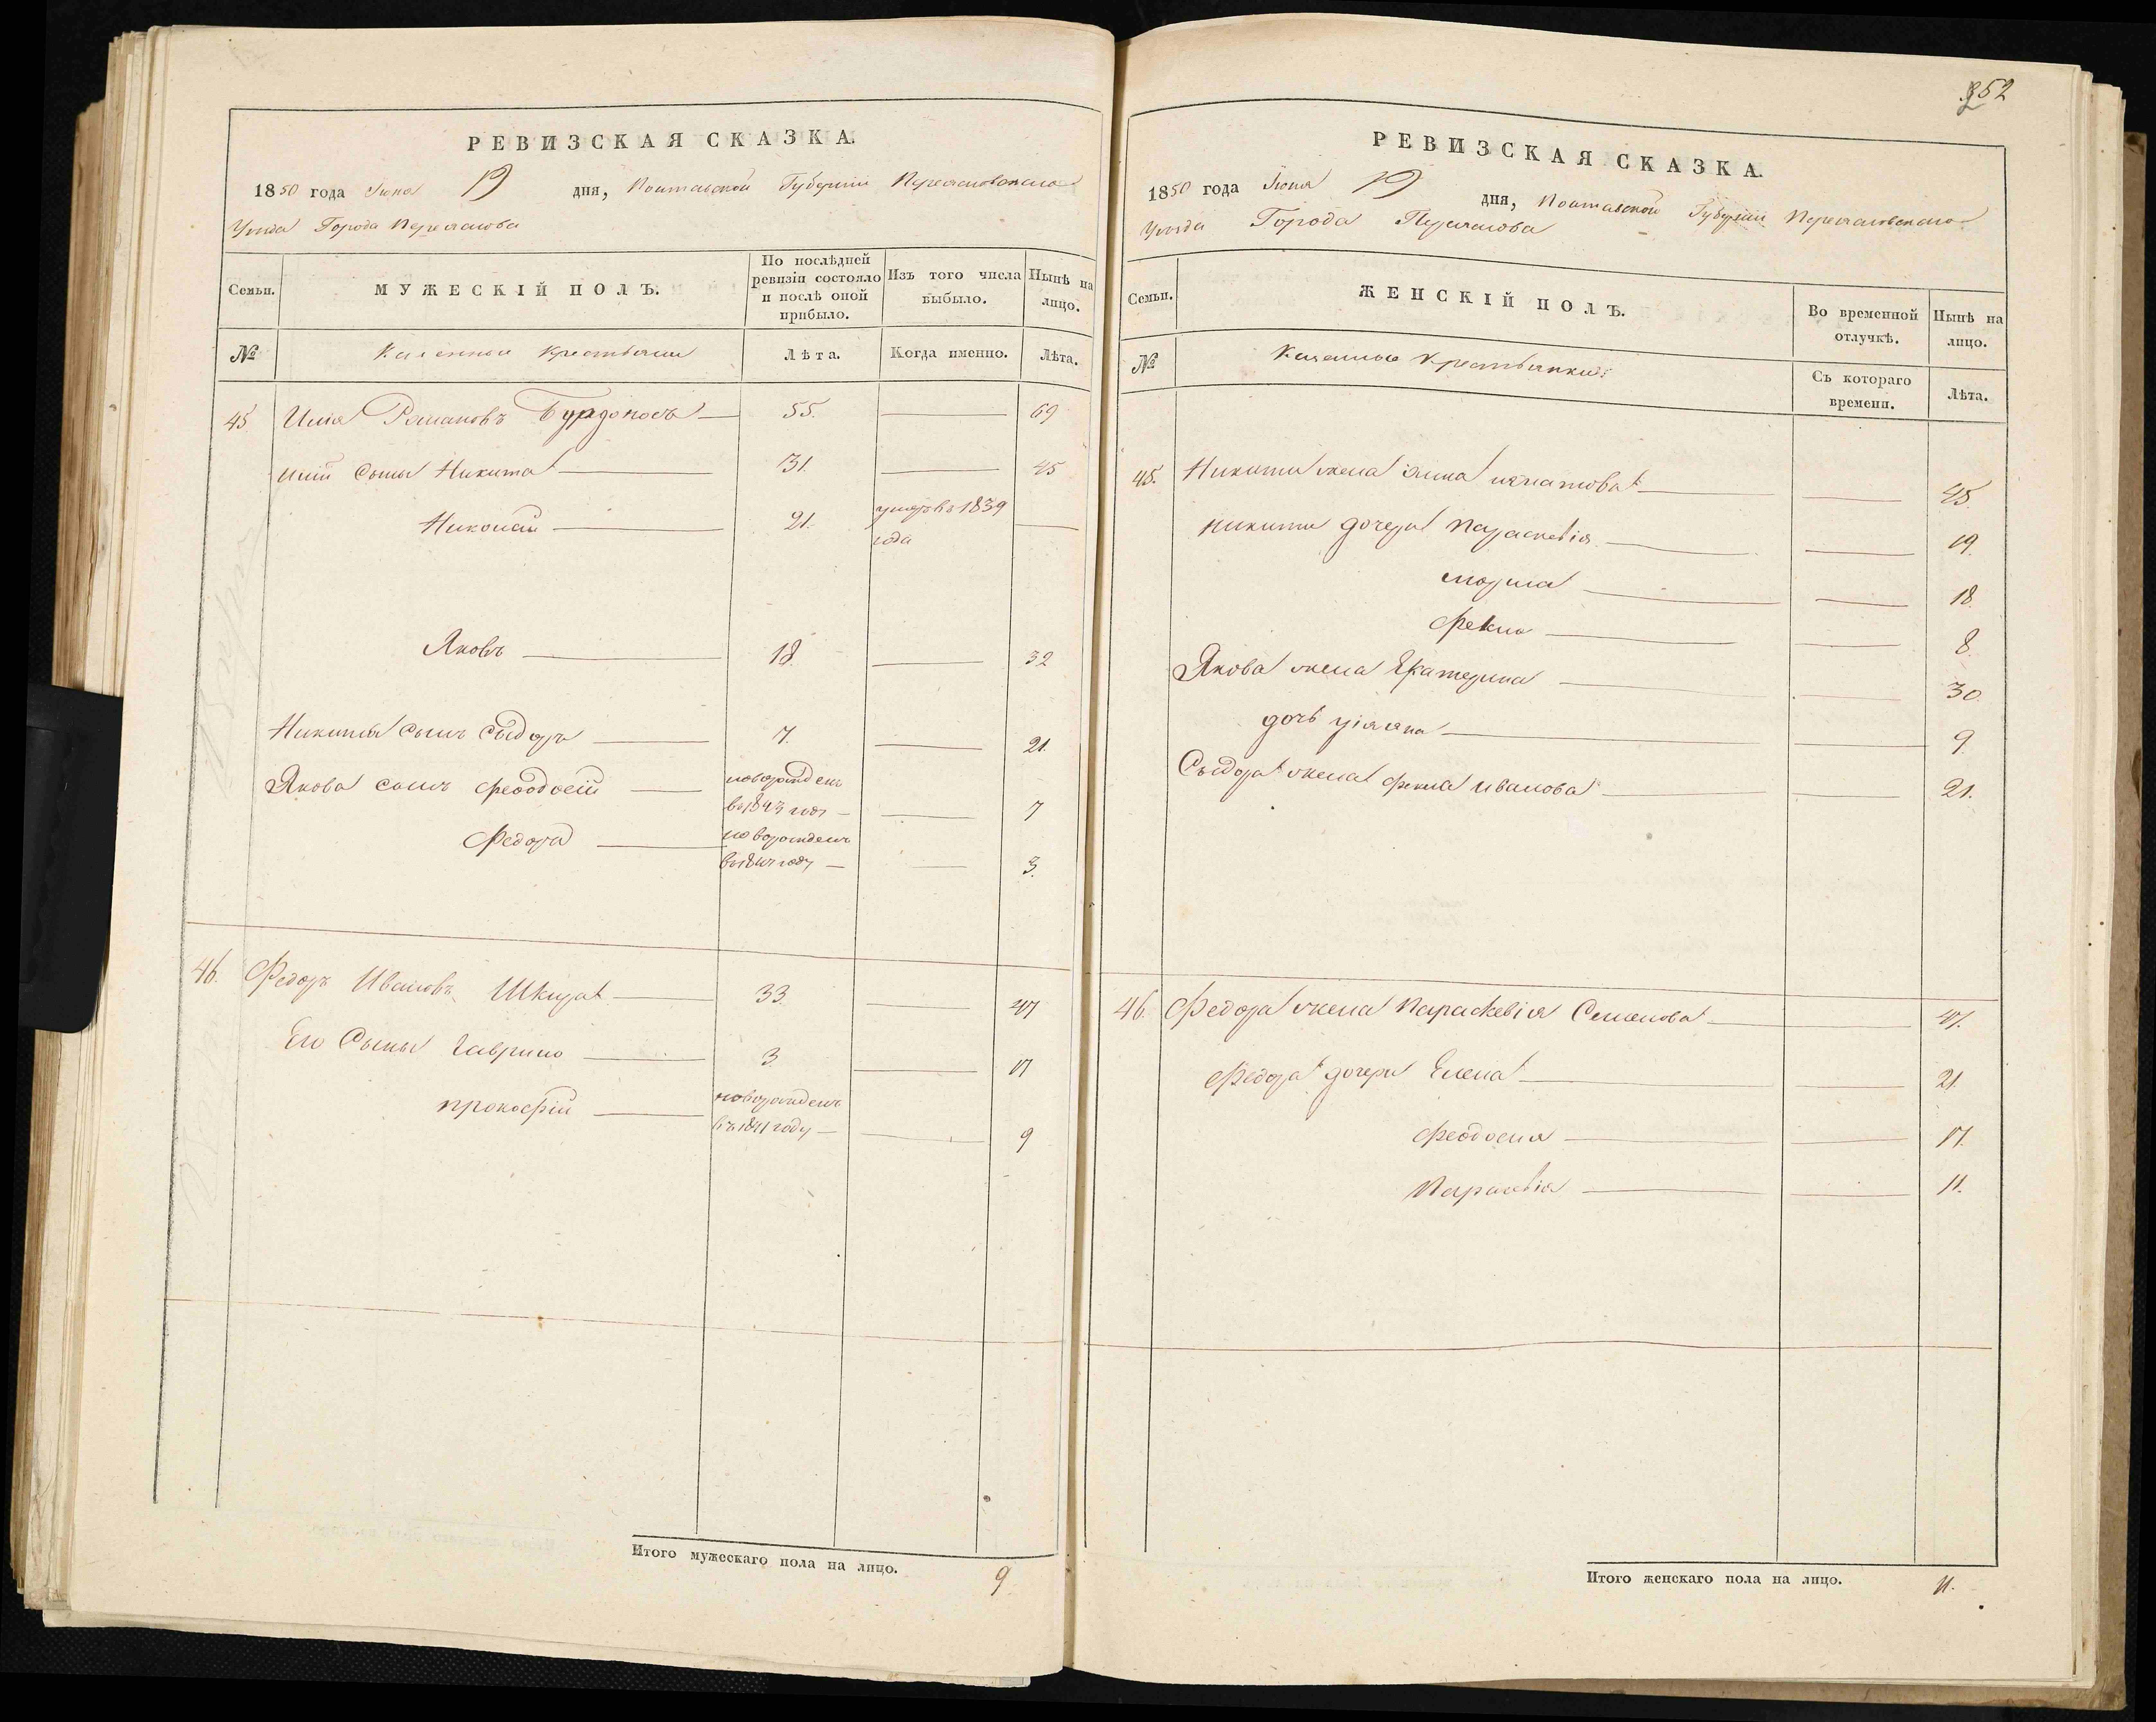 РЕВИЗСКАЯ СКАЗКА.
1850 года Июня 19 дня, Полтавской Губерніи Переяславскаго
Уезда Города Переяслова
Семьи.
МУЖЕСКІЙ ПОЛЪ.
По послѣдней ревизіи состояло и послѣ оной прибыло.
Изъ того числа выбыло.
Нынѣ на лицо.
№
Казенные крестьяне
Лѣта.
Когда именно.
Лѣта.
45 Илья Романовъ 55. 69
Ильи Сыны Никита 31. 45
Николай 21. умеръ въ 1839
года
Яковъ 18. 32
Никиты сынъ Сыдоръ 7. 21.
Якова сынъ Феодосій новорожденъ
въ 1843 году 7
Федоръ новорожденъ
въ 1847 году 3.
46. Федоръ Ивановъ Шкира 33. 47
Его Сыны Гаврило 3 17
прокофій новорожденъ
въ 1841 году 9
Итого мужескаго пола на лицо. 9
252
РЕВИЗСКАЯ СКАЗКА.
1850 года Июня 19 дня, Полтавской Губерніи Переяславскаго
Уезда Города Переяслова
Семьи.
ЖЕНСКІЙ ПОЛЪ.
Во временной отлучкѣ.
Нынѣ на лицо.
№
Казенные Крестьянки
Съ котораго времени.
Лѣта.
45. Никиты жена Анна Игнатова 45.
Никиты дочери Параскевія 19.
18.
Фекла 8.
Якова жена Екатерина 30.
дочь уліяна 9.
Сыдора жена Фекла Иванова 21.
46. Федора жена Параскевія Семенова 47.
Федора дочери Елена 21
Феодосия 17.
Параскевія 11.
Итого женскаго пола на лицо. 11.